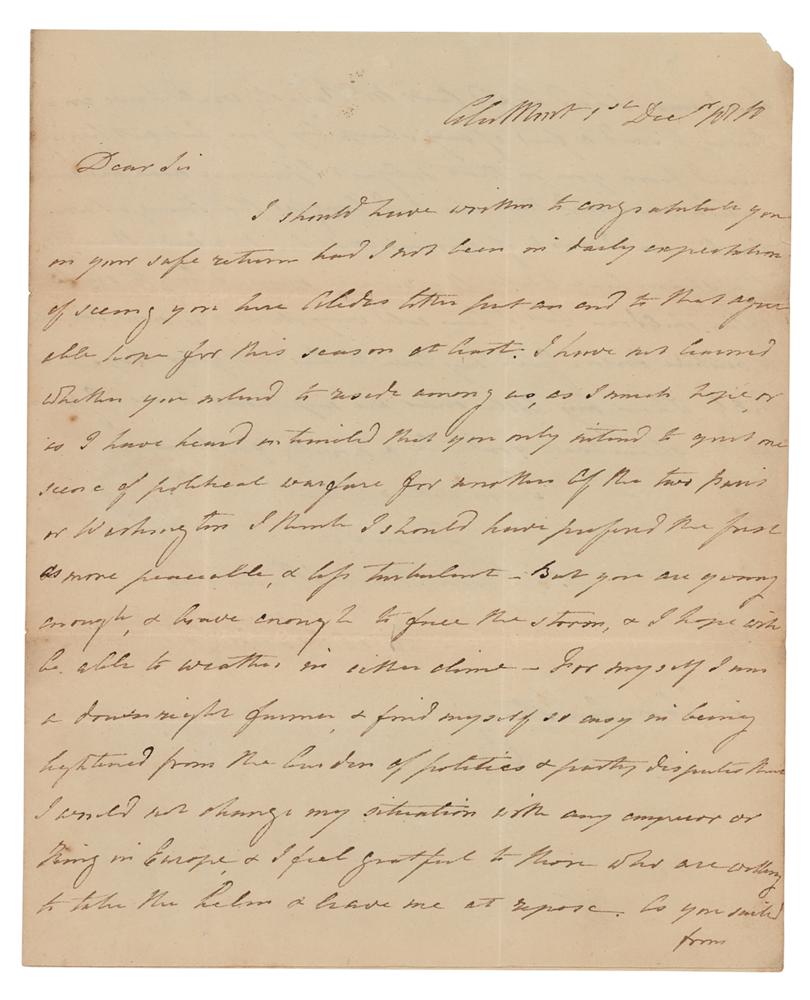 ClerMont 1st Decr 1810
Dear Sir
I should have written to congratulate you
on your safe return had I not been in daily expectation
of seeing you here letter put an end to that agree
able hope for this season at least. I have not learned
whether you intend to reside among us, as I much hope, or
as I have heard intimated that you only intend to quit one
scene of political warfare for another Of the two Paris
or Washington I think I should have prefered the first
as more peaceable, & less turbulent – But you are young
enough, & brave enough to face the storm, & I hope will
be able to weather in either clime – For myself I am
a downright farmer, & find myself so easy in being
lightened from the burden of politics & party disputes that
I would not change my situation with any emperor or
King in Europe, & I feel grateful to those who are willing
to take the helm & leave me at repose. As you sailed
from